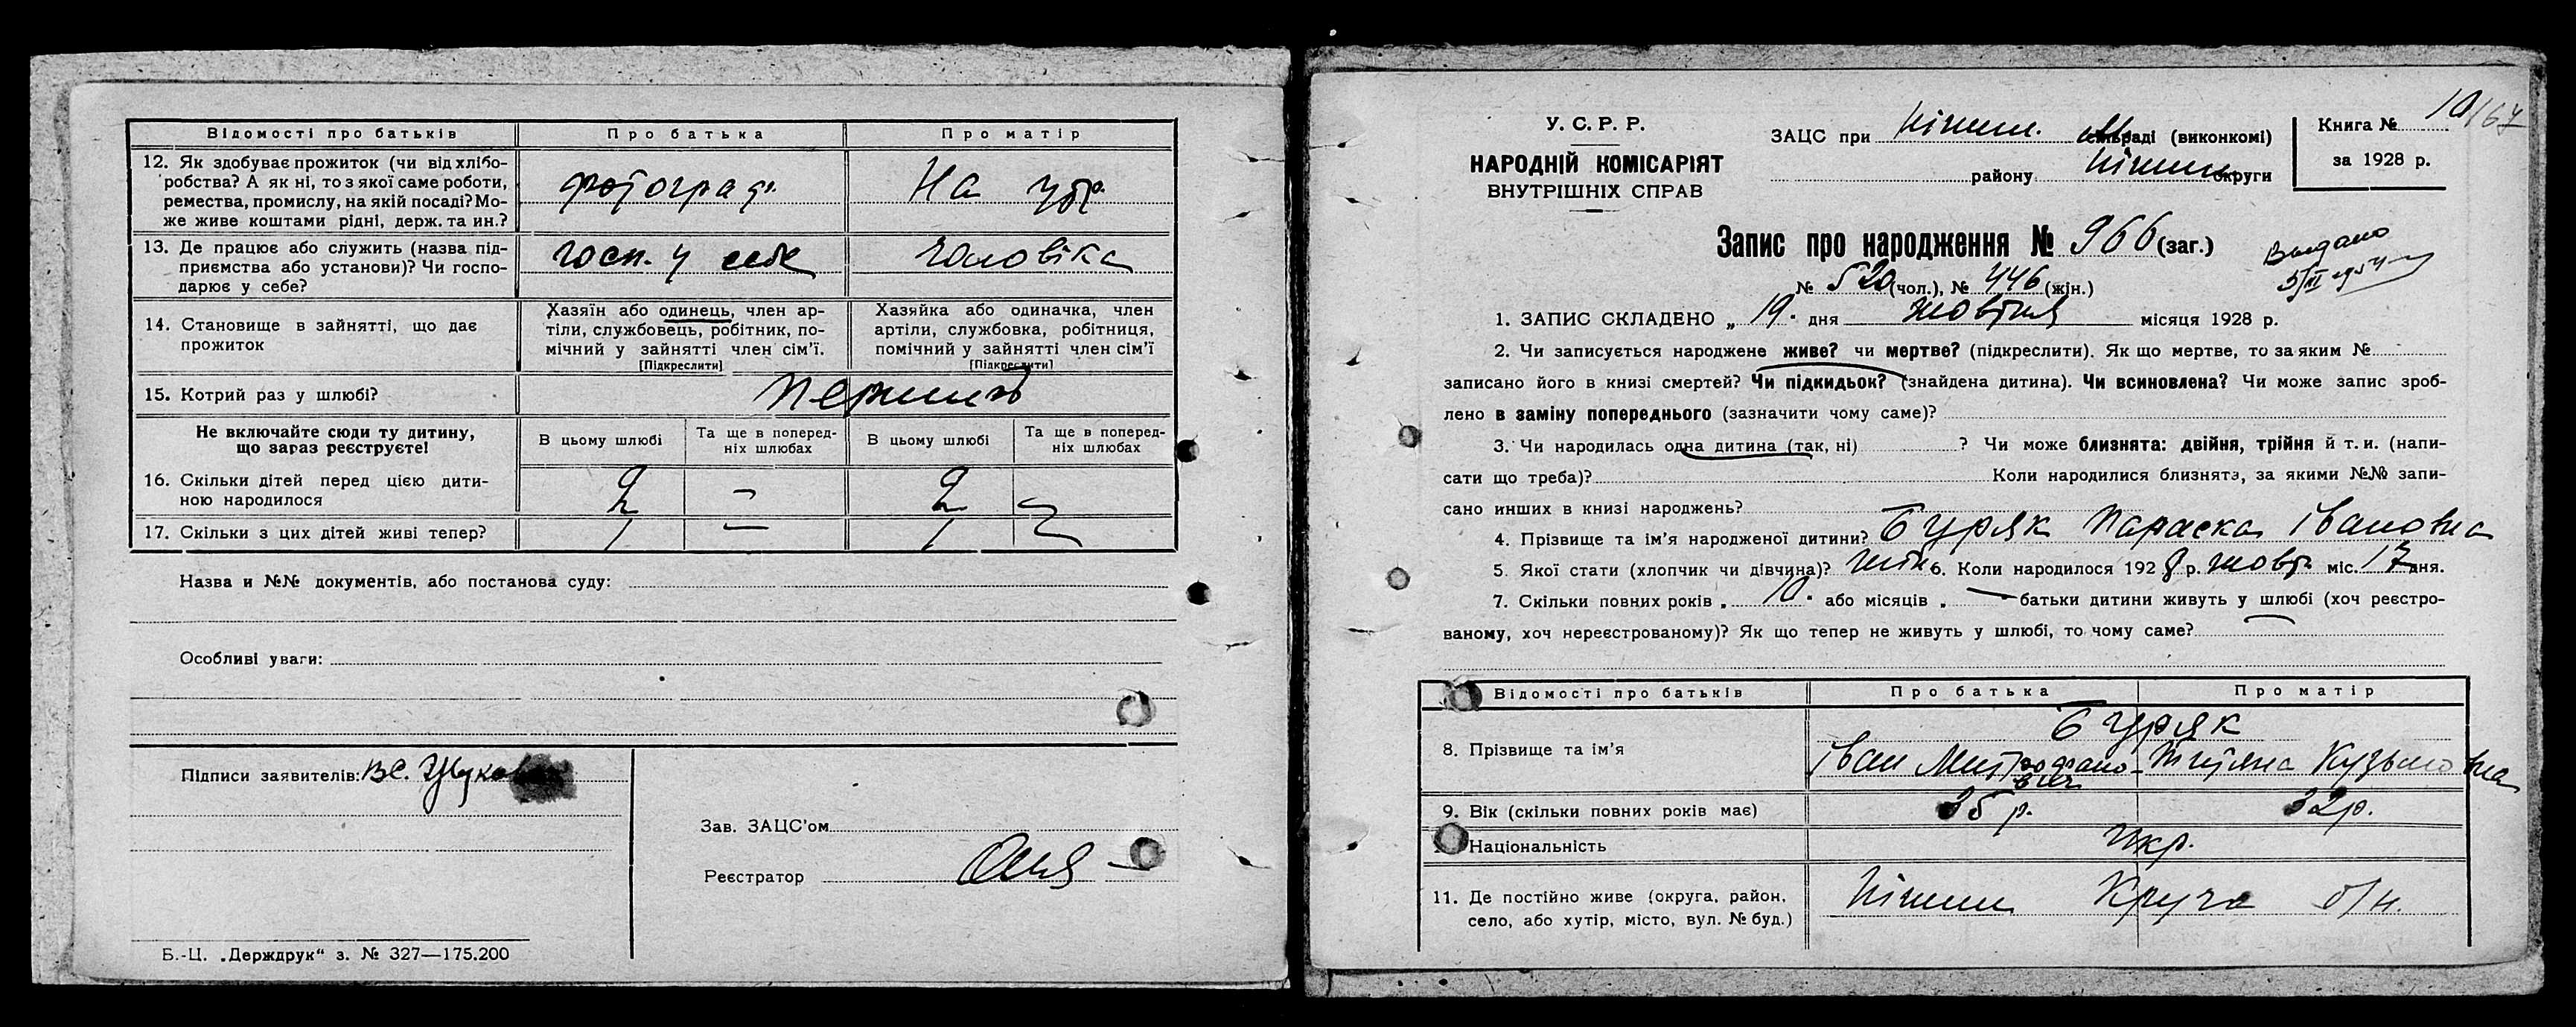 Відомості про батьків | Про батька | Про матір
12. Як здобуває прожиток (чи від хлібо-
робства? А як ні, то з якої саме роботи,
ремества, промислу, на якій посаді? Мо-
же живе коштами рідні, держ. та ин.?
фотограф. | На утр.
13. Де працює або служить (назва під-
приємства або установи)? Чи госпо-
дарює у себе?
госп. у себе | чоловіка
14. Становище в зайнятті, що дає
прожиток
Хазяїн або одинець, член ар-
тіли, службовець, робітник, по-
мічний у зайнятті член сім'ї.
[Підкреслити]
Хазяйка або одиначка, член
артіли, службовка, робітниця,
помічний у зайнятті член сім'ї
[Підкреслити]
15. Котрий раз у шлюбі?
Не включайте сюди ту дитину,
що зараз реєструєте!
В цьому шлюбі | Та ще в поперед-
ніх шлюбах | В цьому шлюбі | Та ще в поперед-
ніх шлюбах
16. Скільки дітей перед цією дити-
ною народилося
2 | – | 2
17. Скільки з цих дітей живі тепер?
1 | – | 1
Назва и №№ документів, або постанова суду:
Особливі уваги:
Підписи заявителів:
Зав. ЗАЦС'ом
Реєстратор
Б.-Ц. „Держдрук“ з. № 327—175.200
У. С. Р. Р.
НАРОДНІЙ КОМІСАРІЯТ
ВНУТРІШНІХ СПРАВ
ЗАЦС при Ніжин. раді (виконкомі)
району Ніжин округи
Книга № 10/67
за 1928 р.
Запис про народження № 966 (заг.)
№ 520 (чол.), № 446 (жін.)
Выдано
1. ЗАПИС СКЛАДЕНО „ 19. дня жовтня місяця 1928 р.
2. Чи записується народжене живе? чи мертве? (підкреслити). Як що мертве, то за яким №
записано його в книзі смертей? Чи підкидьок? (знайдена дитина). Чи всиновлена? Чи може запис зроб-
лено в заміну попереднього (зазначити чому саме)?
3. Чи народилась одна дитина (так, ні) ? Чи може близнята: двійня, трійня й т. и. (напи-
сати що треба)? Коли народилися близнята, за якими №№ запи-
сано инших в книзі народжень?
4. Прізвище та ім'я народженої дитини? Буряк Параска Івановна
5. Якої стати (хлопчик чи дівчина)? жін 6. Коли народилося 1928 р. жовт. міс. 17 дня.
7. Скільки повних років „ 10. або місяців „ — батьки дитини живуть у шлюбі (хоч реєстро-
ваному, хоч нереєстрованому)? Як що тепер не живуть у шлюбі, то чому саме?
Відомості про батьків | Про батька | Про матір
8. Прізвище та ім'я
Буряк
Іван Митрофано-
вич | Тетяна Кузьмовна
9. Вік (скільки повних років має)
35 р. | 32 р.
Національність
Укр.
11. Де постійно живе (округа, район,
село, або хутір, місто, вул. № буд.)
Ніжин Круча б/н.